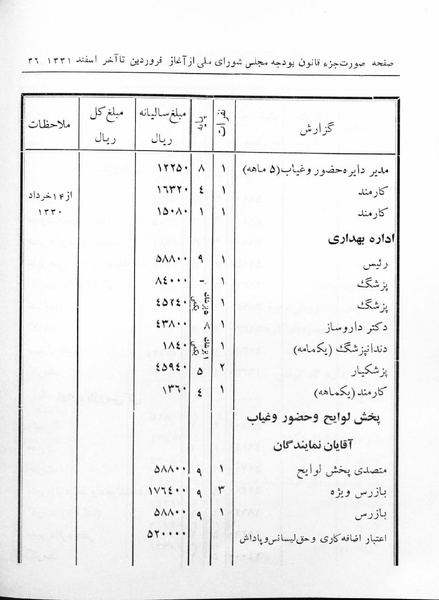 صفحه صورت جزء قانون بودجه مجلس شورای ملی از آغاز فروردین تا آخر اسفند ۱۳۳۱ ۳۶
گزارش نفرات پایه مبلغ سالیانه ریال مبلغ کل ریال ملاحظات
مدیر دایره حضور وغیاب (۵ ماهه) ۱ ۸ ۱۲۲۵۰
کارمند ۱ ٤ ۱۶۳۲۰ از ۱۴ خرداد
کارمند ۱ ۱ ۱۵۰۸۰ ۱۳۳۰
اداره بهداری
رئیس ۱ ۹ ۵۸۸۰۰
پزشگ ۱ ۸٤۰۰۰
پزشگ ۱ ٤۵۲٤۰
دکتر داروساز ۱ ۸ ٤۳۸۰۰
دندانپزشگ (یکماهه) ۱ ۱۸٤۰
پزشکیار ۲ ۵ ٤۵۹٤۰
کارمند (یکماهه) ۱ ٤ ۱۳۶۰
پخش لوایح وحضور وغیاب
آقایان نمایندگان
متصدی پخش لوایح ۱ ۹ ۵۸۸۰۰
بازرس ویژه ۳ ۹ ۱۷۶٤۰۰
بازرس ۱ ۹ ۵۸۸۰۰
اعتبار اضافه کاری وحق لیسانس وپاداش ۵۲۰۰۰۰